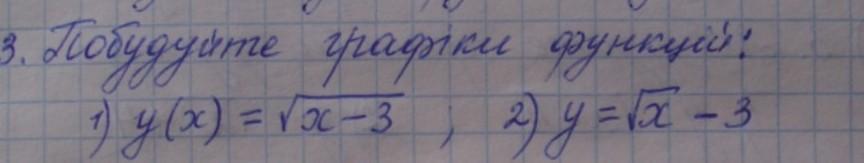 3. Побудуйте графіки функцій:
1) y(x) = √(x-3) ; 2) y = √x - 3